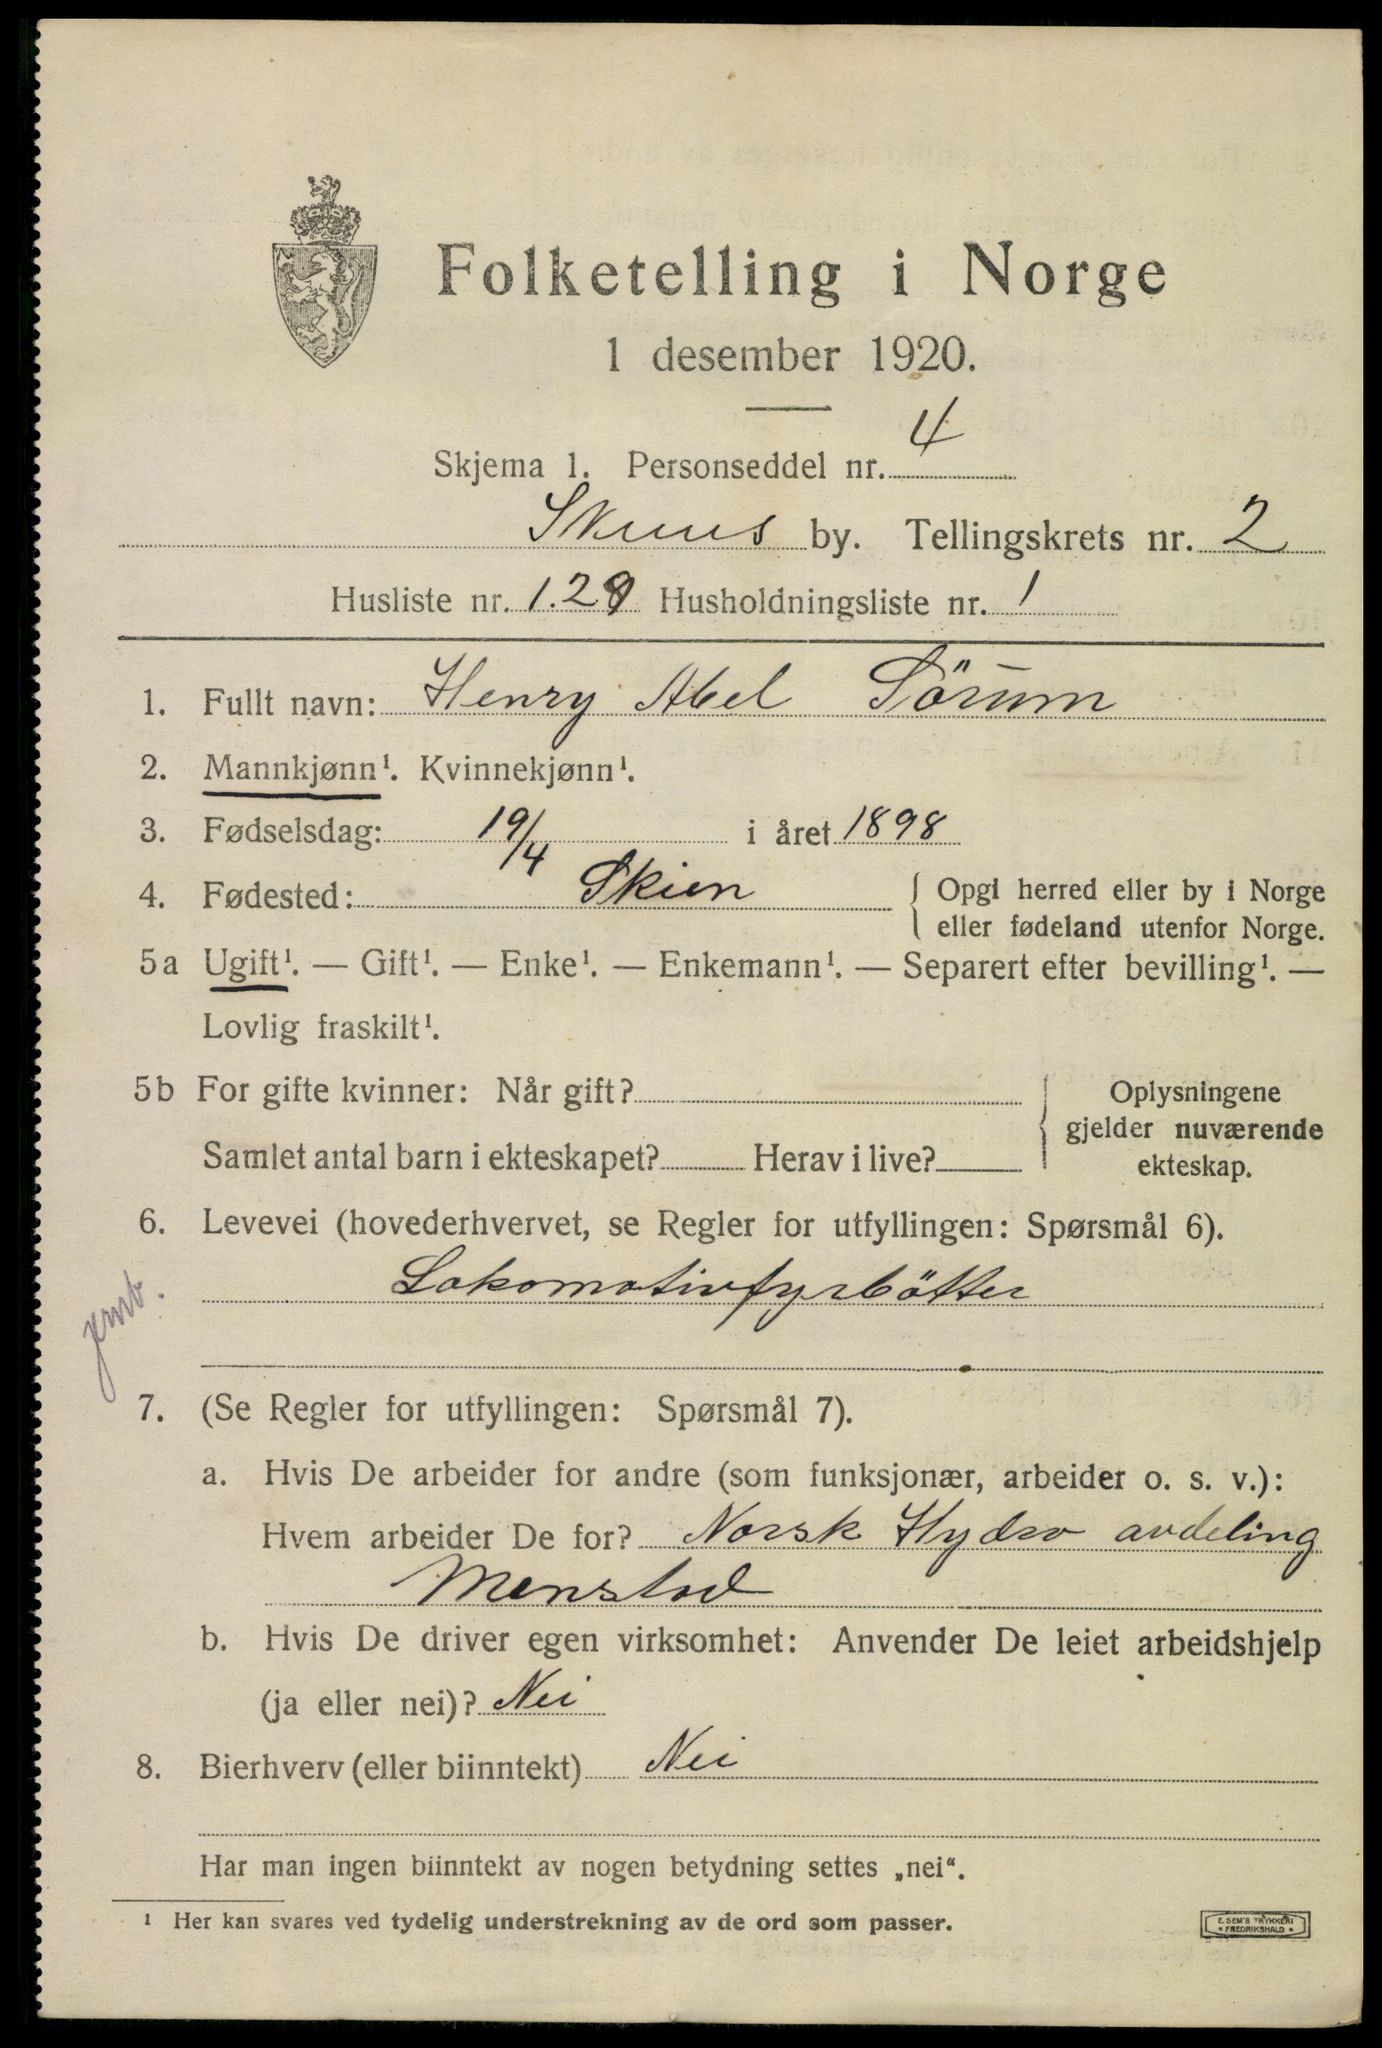 Folketelling i Norge
1 desember 1920.
Skjema 1. Personseddel nr. 4
Skiens by. Tellingskrets nr. 2
Husliste nr. 128 Husholdningsliste nr. 1
1. Fullt navn: Henry Abel Sörum
2. Mannkjønn¹. Kvinnekjønn¹.
3. Fødselsdag: 19/4 i året 1898
4. Fødested: Skien { Opgi herred eller by i Norge
eller fødeland utenfor Norge.
5a Ugift¹. — Gift¹. — Enke¹. — Enkemann¹. — Separert efter bevilling¹. —
Lovlig fraskilt¹.
5b For gifte kvinner: Når gift? { Oplysningene
gjelder nuværende
Samlet antal barn i ekteskapet? Herav i live? ekteskap.
6. Levevei (hovederhvervet, se Regler for utfyllingen: Spørsmål 6).
Lokomotivfyrbötter
jernb.
7. (Se Regler for utfyllingen: Spørsmål 7).
a. Hvis De arbeider for andre (som funksjonær, arbeider o. s. v.):
Hvem arbeider De for? Norsk Hydro avdeling
Menstad
b. Hvis De driver egen virksomhet: Anvender De leiet arbeidshjelp
(ja eller nei)? Nei
8. Bierhverv (eller biinntekt) Nei
Har man ingen biinntekt av nogen betydning settes „nei“.
¹ Her kan svares ved tydelig understrekning av de ord som passer.
E. SEM'S TRYKKERI
* FREDRIKSHALD *